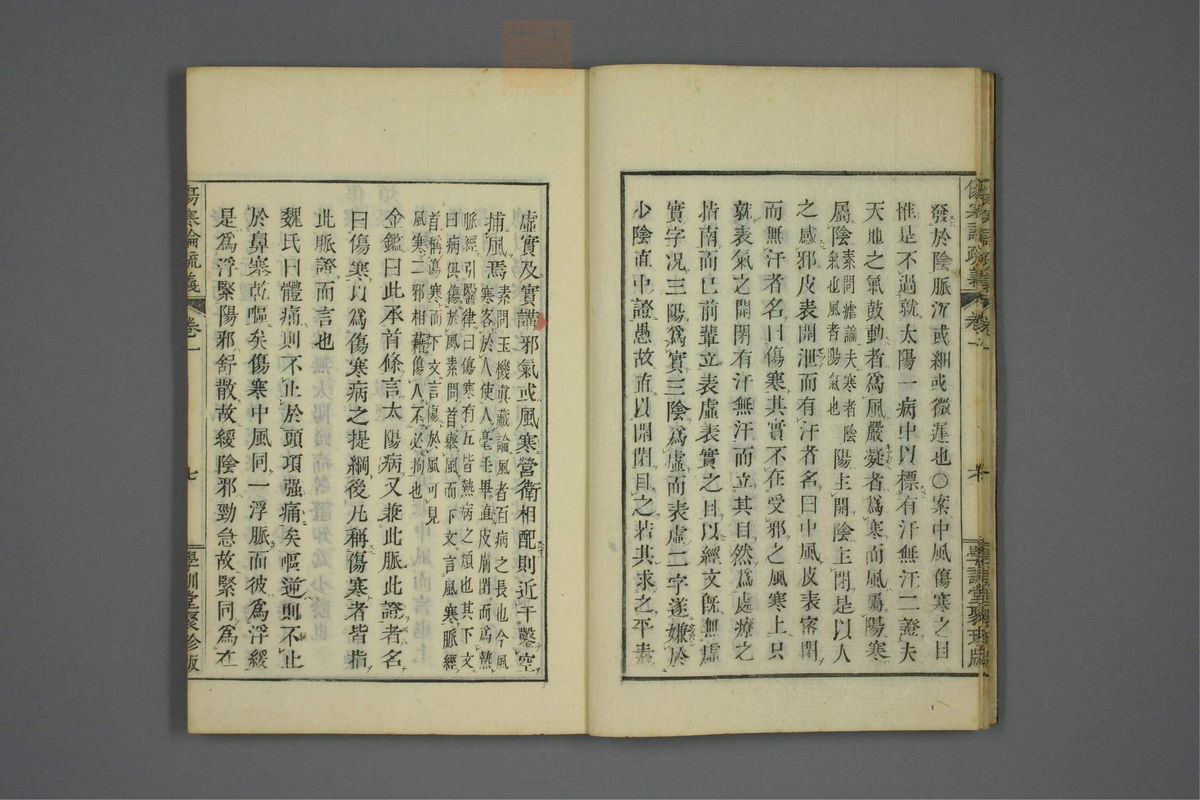 發於陰脈沉或細或微遲也○案中風傷寒之目
惟是不過就太陽一病中以標有汗無汗二證夫
天地之氣鼓動者爲風嚴凝者爲寒而風屬陽寒
屬陰素問瘧論夫寒者陰氣也風者陽氣也陽主開陰主閉是以人
之感邪皮表開泄而有汗者名曰中風皮表密閉
而無汗者名曰傷寒其實不在受邪之風寒上只
就表氣之開閉有汗無汗而立其目然爲處療之
指南而已前輩立表虛表實之目以經文旣無虛
實字况三陽爲實三陰爲虛而表虛二字遂嫌於
少陰直中證愚故直以開閉目之若其求之平素
傷寒論疏義
卷一
學訓堂聚珍版
虛實及實諸邪氣或風寒營衛相配則近于鑿空
捕風焉素問玉機眞藏論風者百病之長也今風
寒客於人使人毫毛畢直皮膚閉而爲熱
脈經引醫律曰傷寒有五皆熱病之類也其下文
曰病俱傷於風素問首擧風而下文言風寒脈經
首稱傷寒而下文言傷於風可見
風寒二邪相藉傷人不必拘也
金鑑曰此承首條言太陽病又兼此脈此證者名
曰傷寒以爲傷寒病之提綱後凡稱傷寒者皆指
此脈證而言也
魏氏曰體痛則不止於頭項强痛矣嘔逆則不止
於鼻塞乾嘔矣傷寒中風同一浮脈而彼爲浮緩
是爲浮緊陽邪舒散故緩陰邪勁急故緊同爲在
傷寒論疏義
卷一
七
學訓堂聚珍版